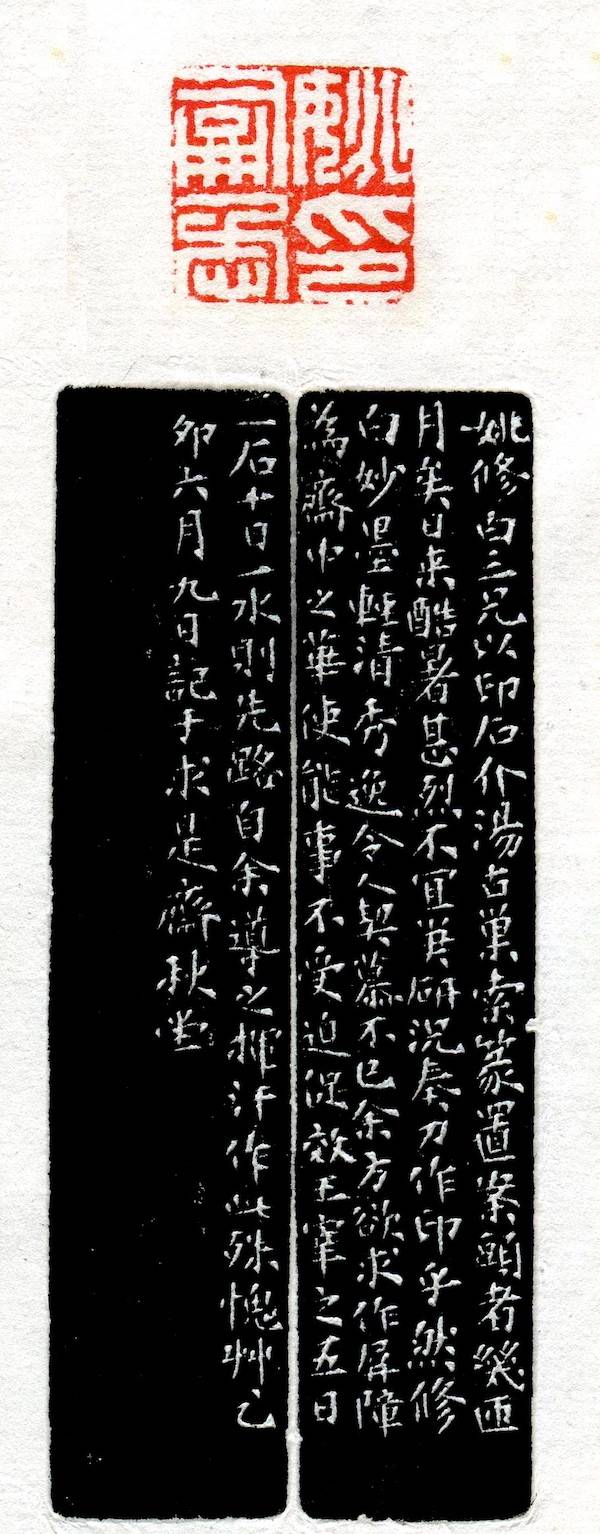 姚印
姚修白三兄以印石介湯古巢索篆置案頭者幾匝
月矣日來酷暑甚烈不宜筆研況奏刀作印乎然修
白妙墨輕清秀逸令人契慕不已余方欲求作屏障
為齋中之華使能事不受迫促效王宰之五日
一石十日一水則先路自余導之揮汗作此殊愧艸乙
卯六月九日記于求是齋秋堂